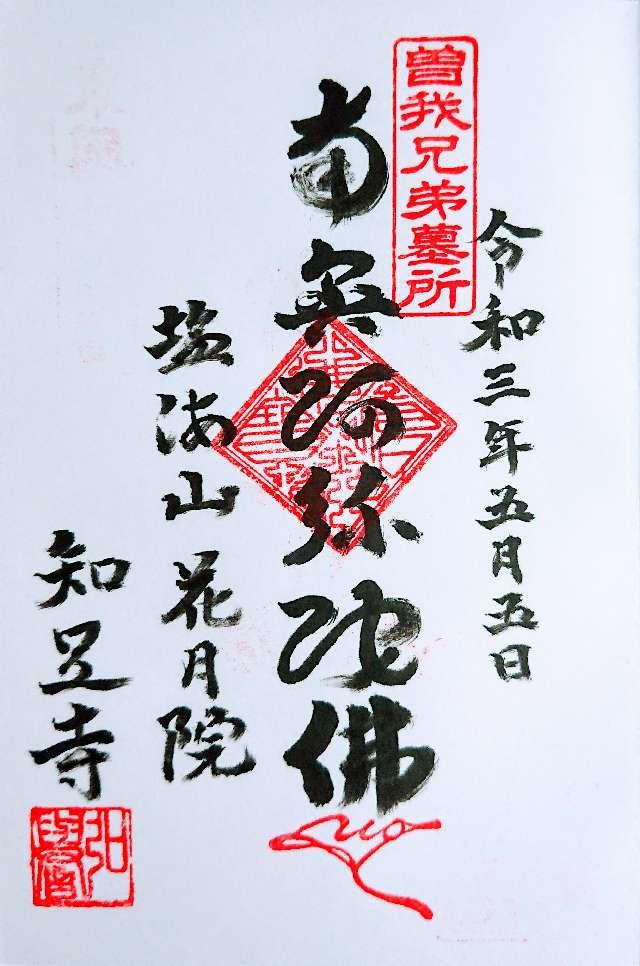 令和三年五月五日
曽我兄弟墓所
南無阿弥陀佛
塩海山花月院
知足寺